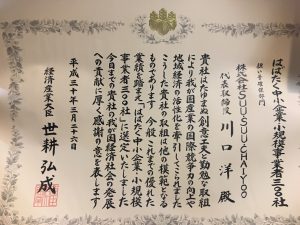 はばたく中小企業・小規模事業者三〇〇社
担い手確保部門
株式会社SUUSUUCHAIYOO
代表取締役 川口洋 殿
貴社はたゆまぬ創意工夫と勤勉な取組
により我が国産業の国際競争力の向上や
地域経済の活性化を牽引してこられました
こうした貴社の取組は他の模範となる
ものであります 今般 これまでの優れた
業績を踏まえ「はばたく中小企業・小規模
事業者三〇〇社」に選定いたしました
今日までの貴社の我が国経済社会の発展
への貢献に厚く感謝の意を表します
平成三十年三月二十六日
経済産業大臣 世耕弘成